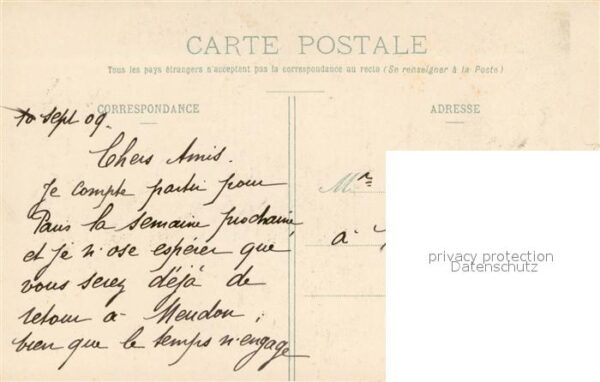 CARTE POSTALE
Tous les pays étrangers n'acceptent pas la correspondance au recto (Se renseigner à la Poste)
CORRESPONDANCE
ADRESSE
10 sept 09.
Chers Amis.
Je compte partir pour
Paris la semaine prochaine
et je n'ose espérer que
vous serez déjà de
retour à Meudon,
bien que le temps n'engage
M
à
privacy protection
Datenschutz